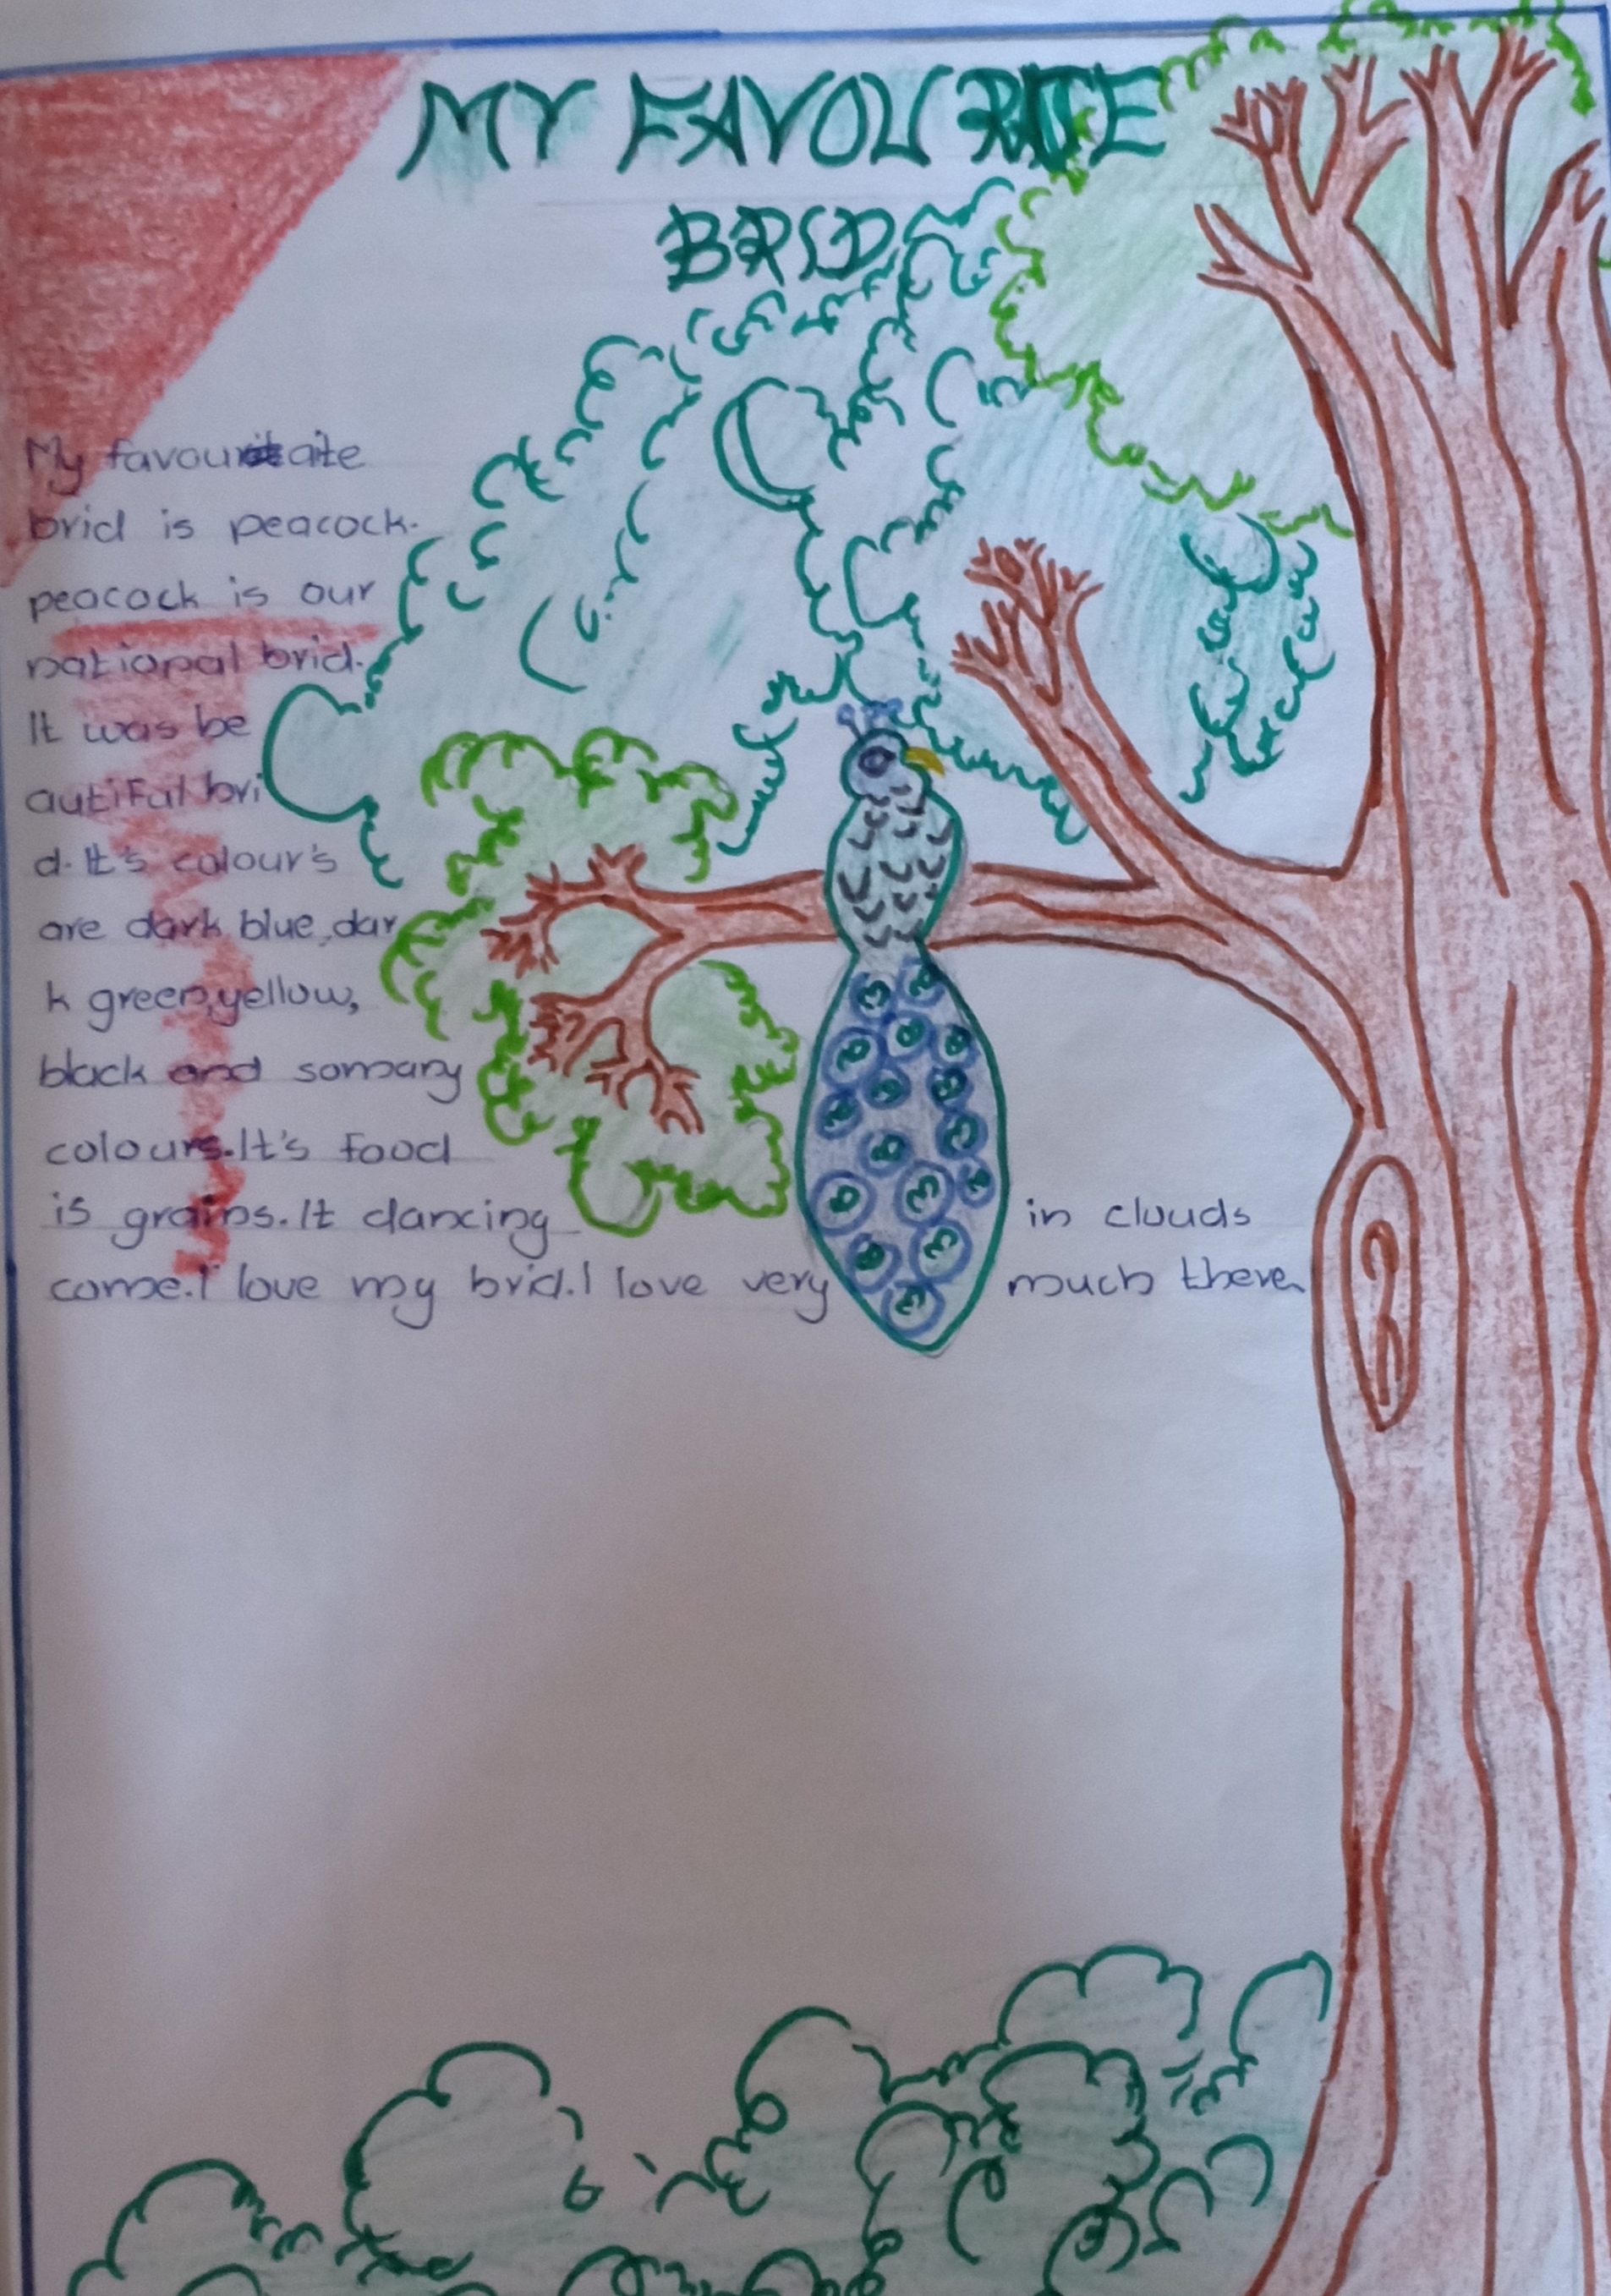 MY FAVOURITE
BRID
My favouraite
brid is peacock.
peacock is our
national brid.
It was be
autiful bri
d. It's colour's
are dark blue, dar
k green, yellow,
black and somany
colours. It's food
is grains. It dancing in clouds
come. I love my brid. I love very much there